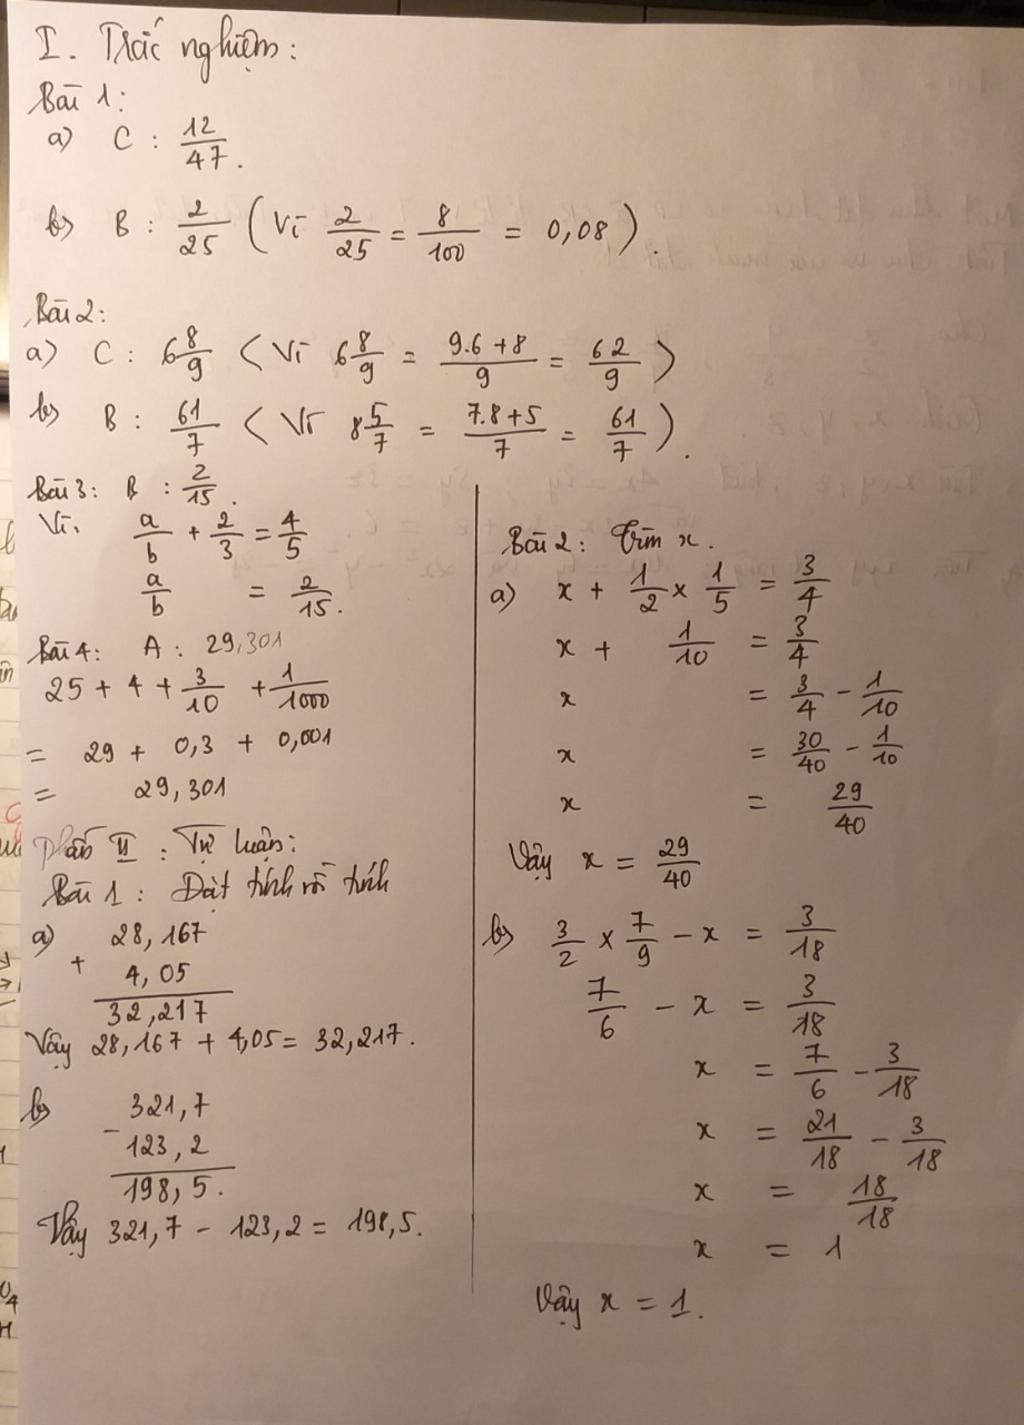 I. Trắc nghiệm:
Bài 1:
a) C : 12/47.
b) B : 2/25 (Vì 2/25 = 8/100 = 0,08).
Bài 2:
a) C : 6 8/9 (Vì 6 8/9 = (9.6 + 8)/9 = 62/9)
b) B : 61/7 (Vì 8 5/7 = (7.8 + 5)/7 = 61/7).
Bài 3: B : 2/15.
Vì. a/b + 2/3 = 4/5
a/b = 2/15.
Bài 4: A : 29,301
25 + 4 + 3/10 + 1/1000
= 29 + 0,3 + 0,001
= 29,301
Phần II : Tự luận:
Bài 1 : Đặt tính rồi tính
a) 28,167
+ 4,05
32,217
Vậy 28,167 + 4,05 = 32,217.
b) 321,7
- 123,2
198,5.
Vậy 321,7 - 123,2 = 198,5.
Bài 2: Tìm x.
a) x + 1/2 × 1/5 = 3/4
x + 1/10 = 3/4
x = 3/4 - 1/10
x = 30/40 - 1/10
x = 29/40
Vậy x = 29/40
b) 3/2 × 7/9 - x = 3/18
7/6 - x = 3/18
x = 7/6 - 3/18
x = 21/18 - 3/18
x = 18/18
x = 1
Vậy x = 1.